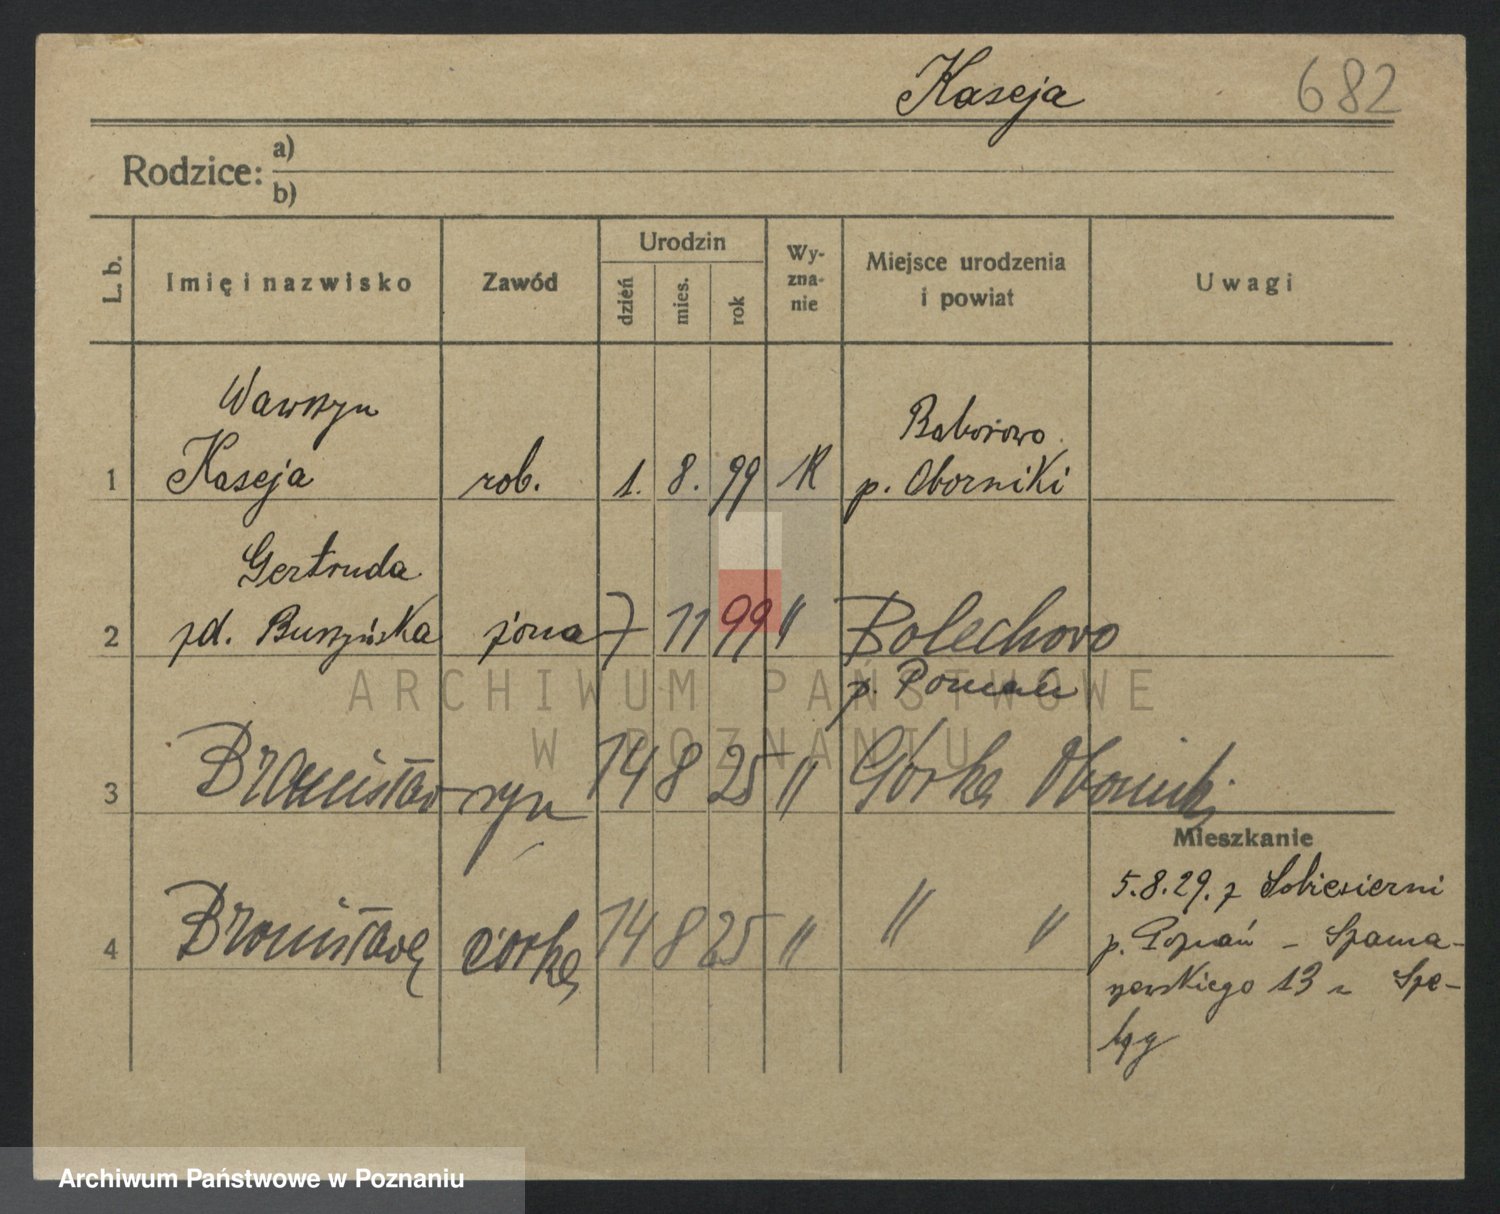 Kaseja 682
Rodzice: a)
b)
L. b.
Imię i nazwisko
Zawód
Urodzin
dzień
mies.
rok
Wy-
zna-
nie
Miejsce urodzenia
i powiat
Uwagi
Wawrzyn
Kaseja
1 rob. 1. 8. 99 K
Baborowo
p. Oborniki
Gertruda
2 zd. Buszyńska żona 7 11 99 "
Bolechowo
p. Poznań
3 Bronisław syn 14 8 25 " Górka Oborniki
4 Bronisława córka 14 8 25 " " "
Mieszkanie
5.8.29. z
p. Poznań -
13
ARCHIWUM PAŃSTWOWE
W POZNANIU
Archiwum Państwowe w Poznaniu